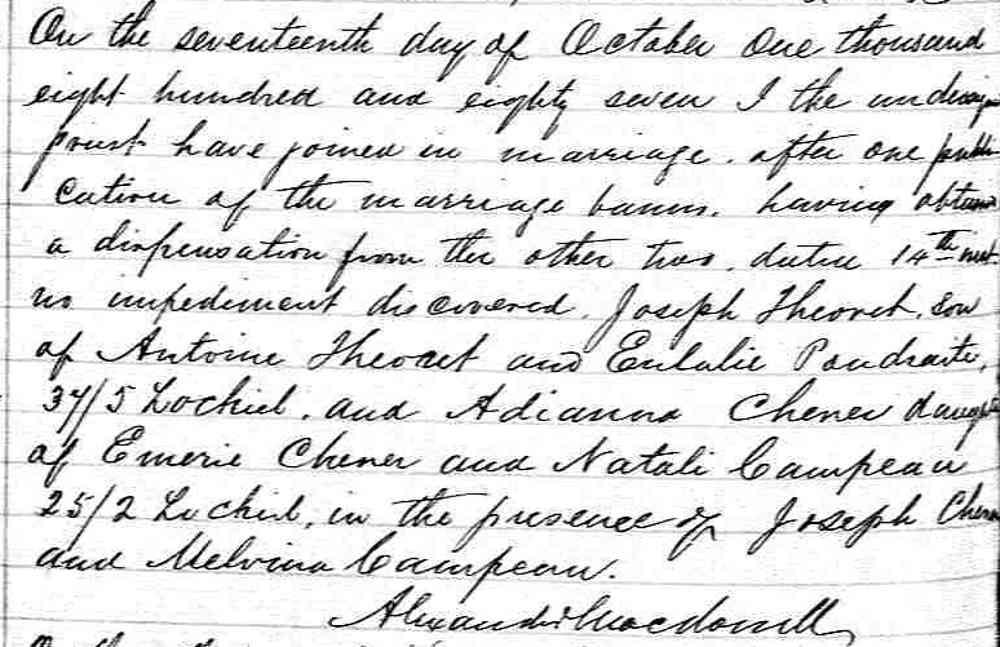 On the seventeenth day of October One thousand
eight hundred and eighty seven I the undersign
priest have joined in marriage. after one publi
cation of the marriage banns. having obtained
a dispensation from the other two. dated 14th inst.
no impediment discovered. Joseph Theoret. son
of Antoine Theoret and Eulalie Poudraite,
37/5 Lochiel. and Adianna Chener daught
of Emerie Chener and Natali Campeau
25/2 Lochiel. in the presence of Joseph Chener
and Melvina Campeau.
Alexander Macdonell